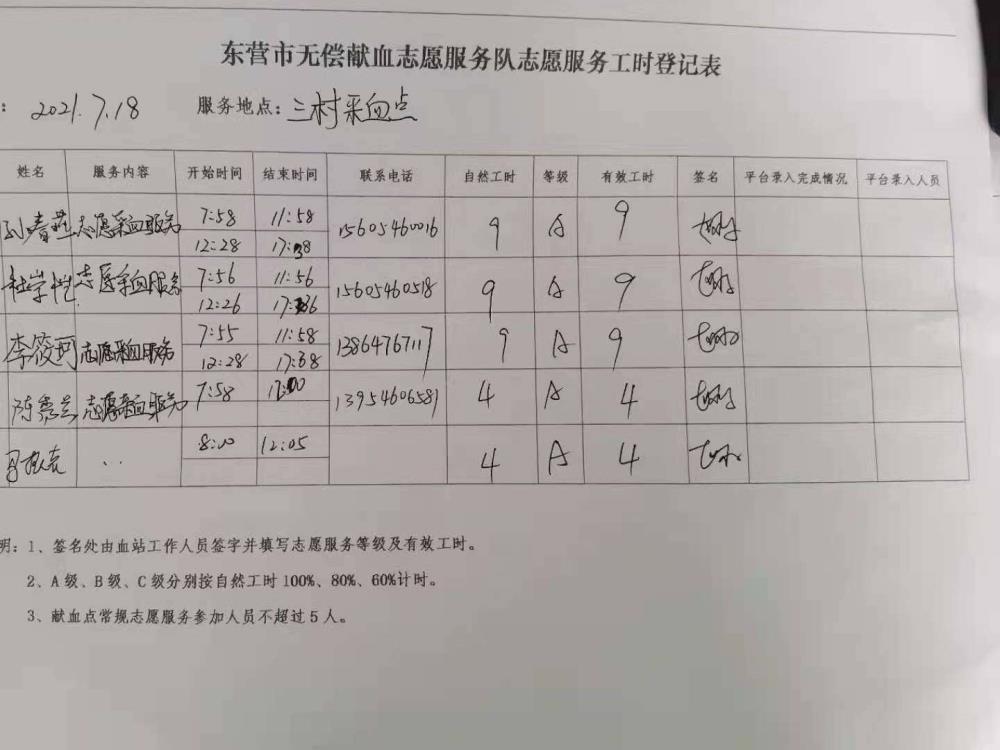 东营市无偿献血志愿服务队志愿服务工时登记表
: 2021.7.18 服务地点: 三村采血点
姓名 服务内容 开始时间 结束时间 联系电话 自然工时 等级 有效工时 签名 平台录入完成情况 平台录入人员
志愿采血服务 7:58 11:58 15605460016 9 A 9
12:28 17:38
志愿采血服务 7:56 11:56 15605460518 9 A 9
12:26 17:36
李筱珂 志愿采血服务 7:55 11:58 13864767117 9 A 9
12:28 17:38
志愿采血服务 7:58 12:00 13954606581 4 A 4
8:00 12:05 4 A 4
明: 1、签名处由血站工作人员签字并填写志愿服务等级及有效工时。
2、A 级、B 级、C 级分别按自然工时 100%、80%、60%计时。
3、献血点常规志愿服务参加人员不超过 5 人。